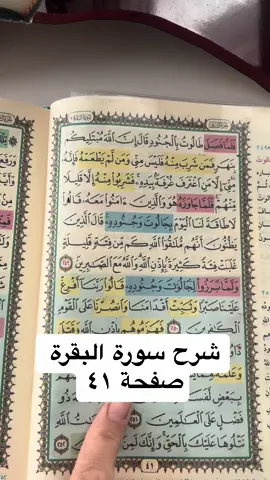 فَلَمَّا فَصَلَ طَالُوتُ بِالْجُنُودِ قَالَ إِنَّ اللَّهَ مُبْتَلِيكُم
بِنَهَرٍ فَمَن شَرِبَ مِنْهُ فَلَيْسَ مِنِّي وَمَن لَّمْ يَطْعَمْهُ فَإِنَّهُ
مِنِّي إِلَّا مَنِ اغْتَرَفَ غُرْفَةً بِيَدِهِ فَشَرِبُوا مِنْهُ إِلَّا قَلِيلًا
مِّنْهُمْ فَلَمَّا جَاوَزَهُ هُوَ وَالَّذِينَ آمَنُوا مَعَهُ قَالُوا
لَا طَاقَةَ لَنَا الْيَوْمَ بِجَالُوتَ وَجُنُودِهِ قَالَ الَّذِينَ
يَظُنُّونَ أَنَّهُم مُّلَاقُو اللَّهِ كَم مِّن فِئَةٍ قَلِيلَةٍ
غَلَبَتْ فِئَةً كَثِيرَةً بِإِذْنِ اللَّهِ وَاللَّهُ مَعَ الصَّابِرِينَ ٢٤٩
وَلَمَّا بَرَزُوا لِجَالُوتَ وَجُنُودِهِ قَالُوا رَبَّنَا أَفْرِغْ
عَلَيْنَا صَبْرًا وَثَبِّتْ أَقْدَامَنَا وَانصُرْنَا عَلَى الْقَوْمِ
الْكَافِرِينَ ٢٥٠ فَهَزَمُوهُم بِإِذْنِ اللَّهِ وَقَتَلَ
شرح سورة البقرة
صفحة ٤١
وَعَلَّمَهُ
بِبَعْضٍ
فَضْلٍ عَلَى الْعَالَمِينَ ٢٥١
نَتْلُوهَا عَلَيْكَ بِالْحَقِّ وَإِنَّكَ لَمِنَ ٢٥٢
٤١